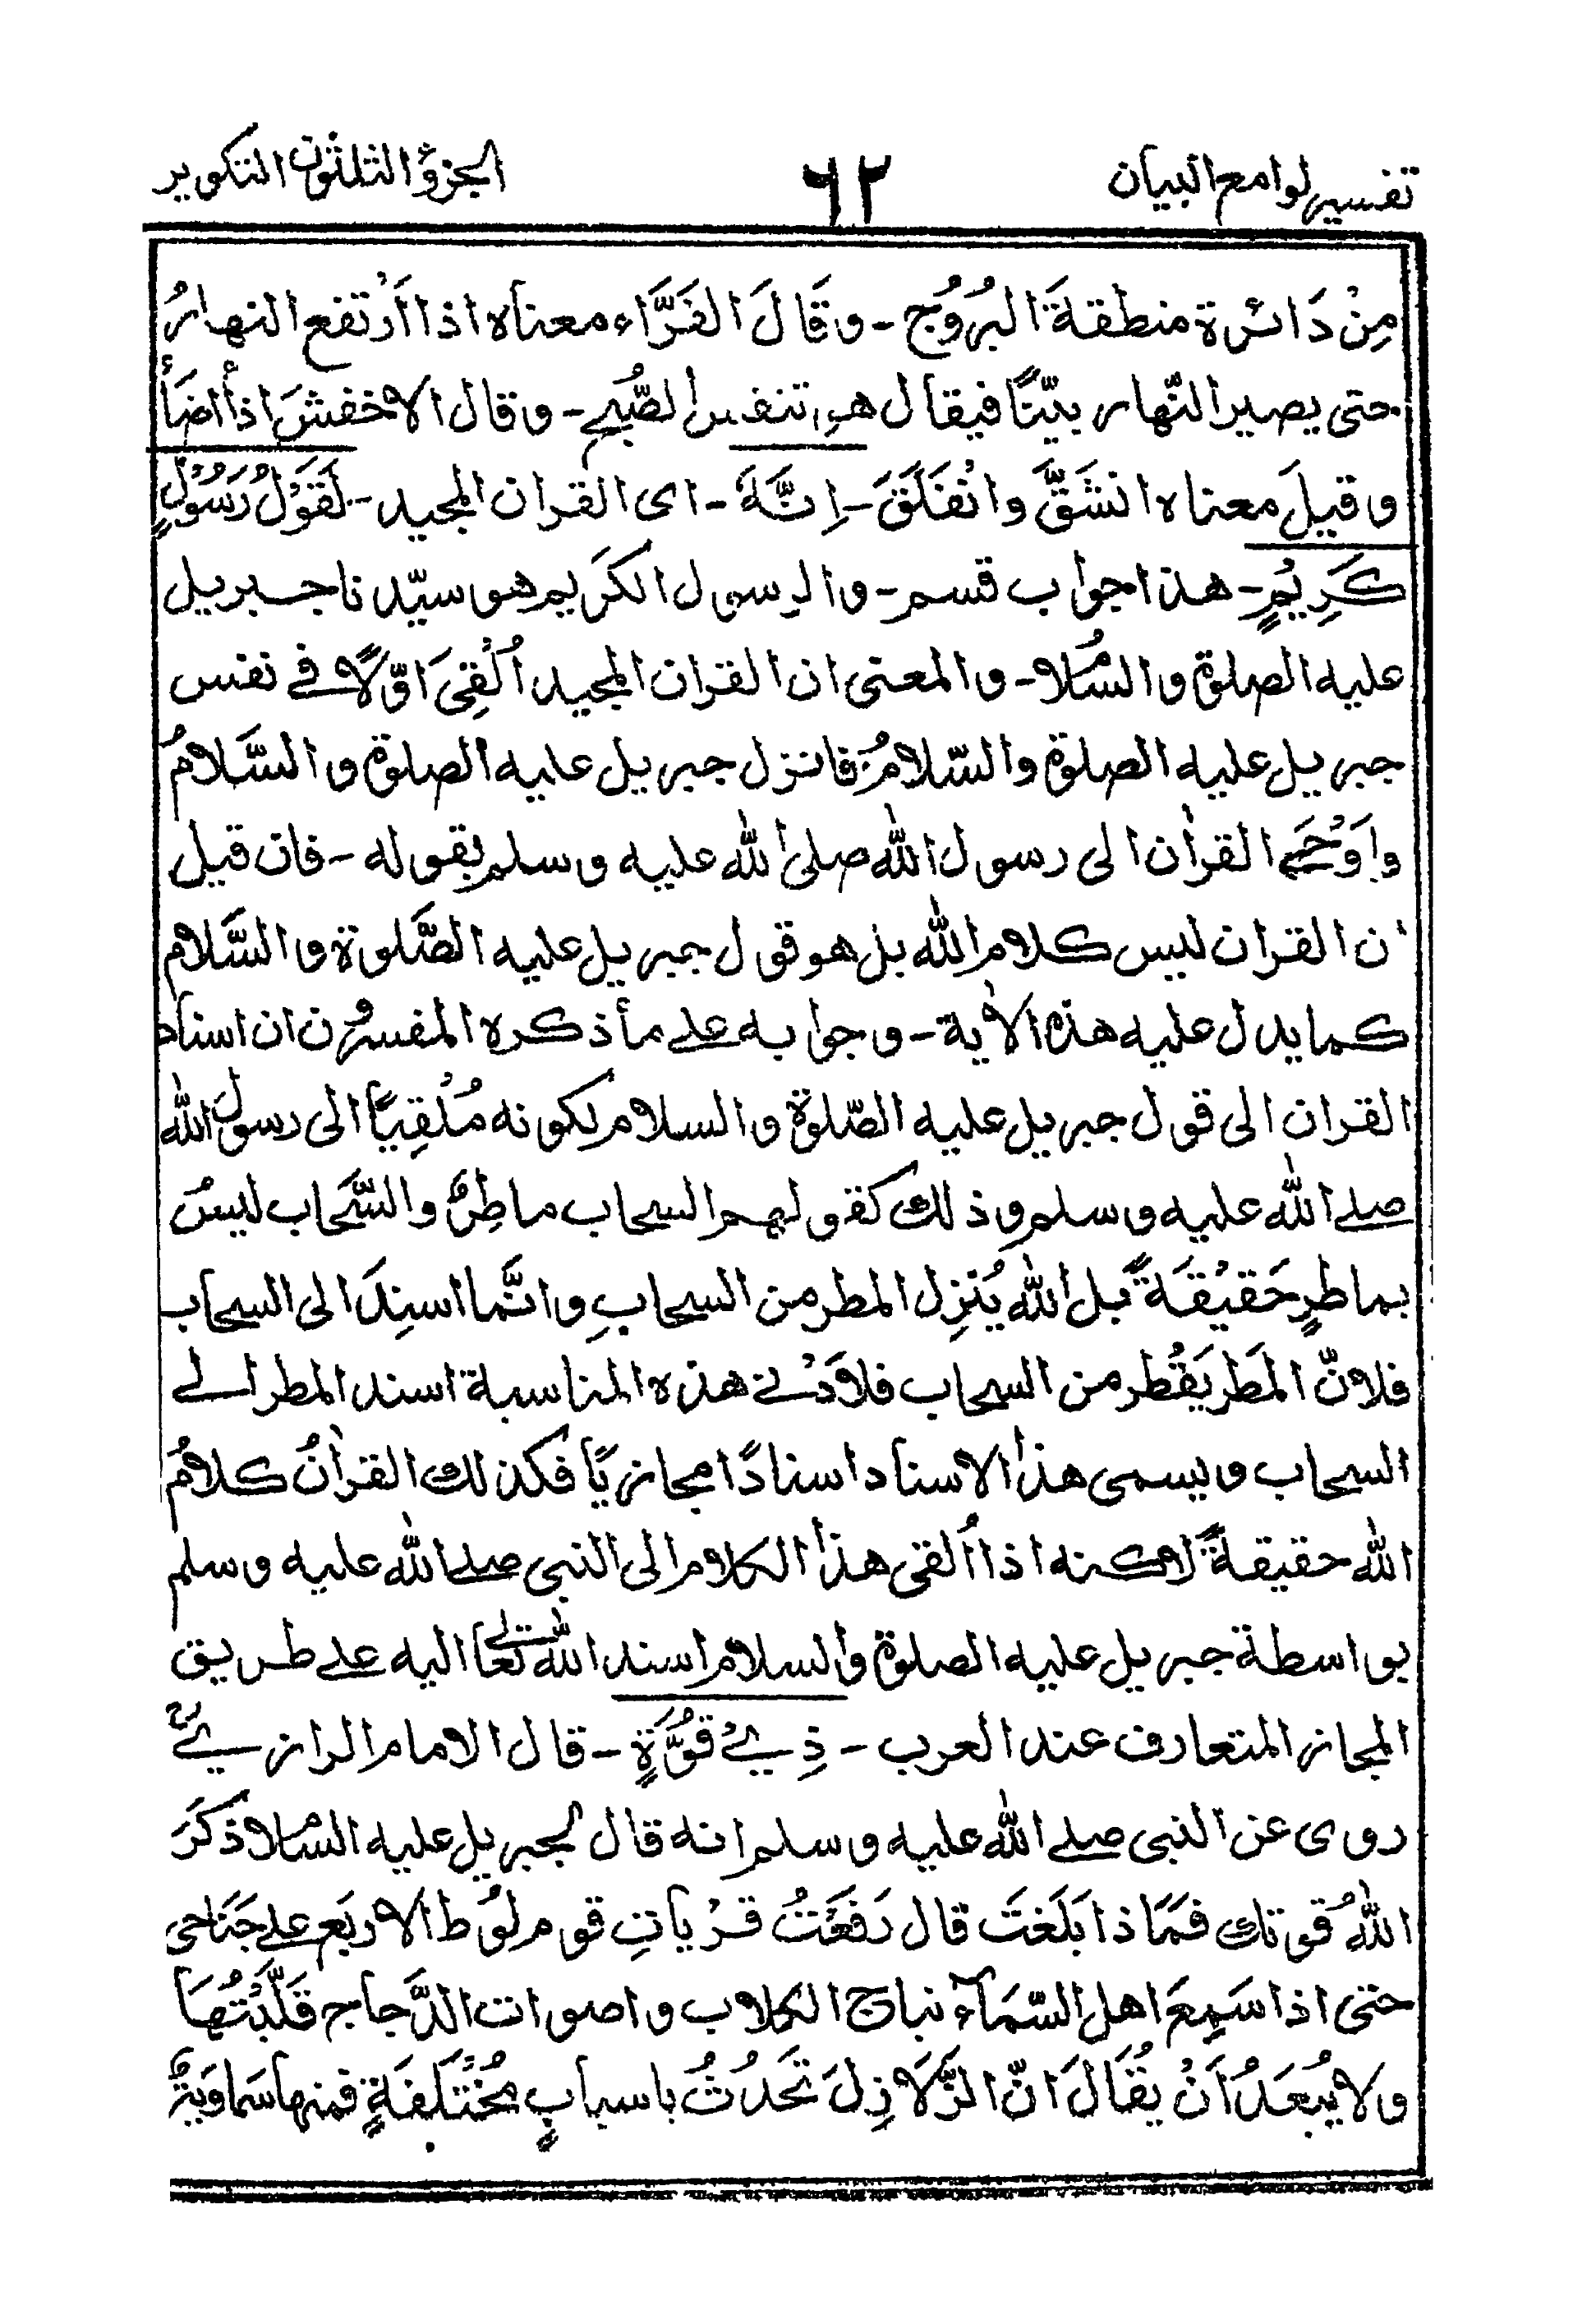 تفسير لوامع البيان ٦٢ الجزؤ الثلثون التكوير
مِنْ دَائرة منطقةَ البُرُوُج - و قَالَ الفَرَّاء معناه اذا اَرْتفع النهارُ
حتى يصير النّهار بيّنًا فيقال تنفس الصُّبح - و قال الاخفشَ اذا اضَأ
و قيلَ معناه انشَقَّ وانْفَلَقَ - اِنَّهٗ - اى القران المجيد - لَقَوْلُ رَسُوْلٍ
كَرِيْمٍ - هذا جواب قسم - والرسول الكَريم هو سيّدنا جبريل
عليه الصلوة والسّلام - والمعنى ان القران المجيد اُلْقِىَ اوّلًا فے نفس
جبريل عليه الصلوة والسّلامُ فانزل جبريل عليه الصلوة و السَّلامُ
وَاَوْحَے القراٰن الى رسول الله صلى الله عليه و سلم بقوله - فان قيل
ان القران ليس كلام الله بل هو قول جبريل عليه الصَّلوة و السَّلام
كما يدل عليه هذه الاٰية - و جوابه علے ما ذكره المفسرون ان اسناد
القران الى قول جبريل عليه الصّلوة والسلام لكونه مُلْقِيًا الى رسول الله
صلے الله عليه و سلم و ذلك كقولهم السحاب ماطِرٌ والسَّحَاب ليسَ
بماطرٍ حَقيْقَةً بل الله يُنزِل المطر من السحابِ و انَّما اسنِدَ الى السحاب
فلانّ المَطر يَقْطر من السحاب فلاَدْنے هذه المناسبة اسند المطر الے
السحاب و يسمى هذا الاسناد اسنادًا مجازيًا فكذلك القراٰنُ كلامُ
الله حقيقةً لاكنه اذا اُلقى هذا الكلام الى النبى صلے الله عليه و سلم
بواسطة جبريل عليه الصلوة والسلام اسند الله تعالے اليه علے طريق
المجاز المتعارف عند العرب - ذِيْ قُوَّةٍ - قال الامام الرازيے
روى عن النبى صلے الله عليه و سلم انه قال لجبريل عليه السلام ذكَرَ
اللهُ قوتك فمَاذا بَلَغتَ قال رَفَعْتُ قرْياتِ قوم لوُط الاربَع علے جَنَاحى
حتى اذا سَمِعَ اهل السّمَآء نباح الكلاب و اصوات الدَّجاج قَلَّبْتُهَا
ولا يبْعَدُ اَنْ يُقَالَ انّ الزَّلَازِلَ تَحَدُثُ باسبابٍ مُخْتَلفَةٍ فمنها سَماوَيةٌ